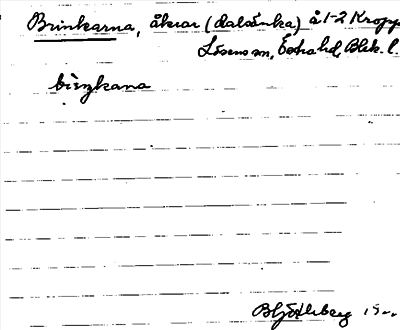 Brinkarna, åkrar (dalsänka) å 1-2 Kropp
Lösens sn, Östra hd, Blek. l.
brıŋkana
B Hjõrtsberg 19